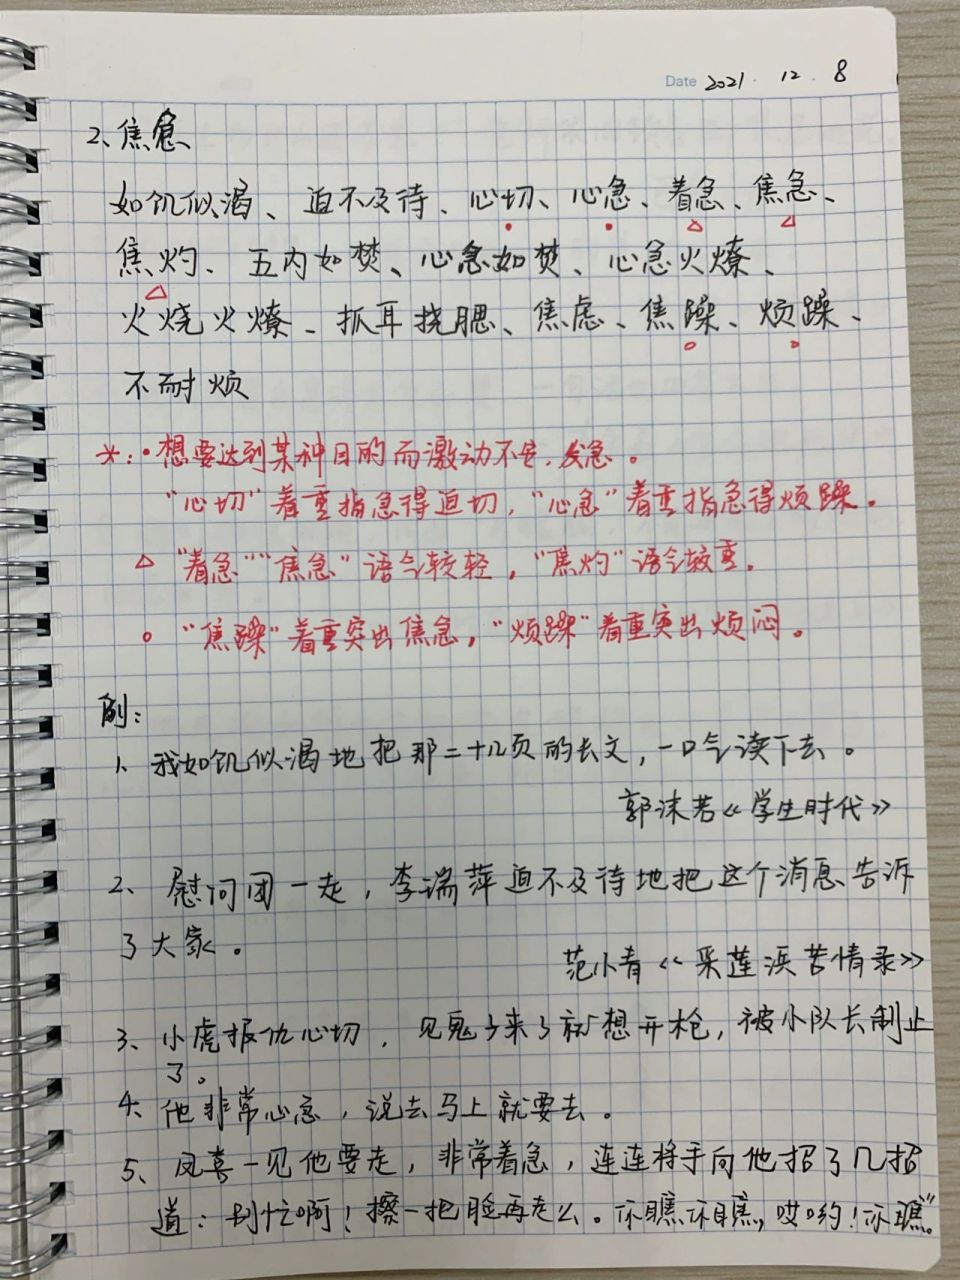 Date 2021. 12. 8
2、焦急
如饥似渴、迫不及待、心切、心急、着急、焦急、
焦灼、五内如焚、心急如焚、心急火燎、
火烧火燎、抓耳挠腮、焦虑、焦躁、烦躁、
不耐烦
*:·想要达到某种目的而激动不安,发急。
“心切”着重指急得迫切,“心急”着重指急得烦躁。
△ “着急”“焦急”语气较轻,“焦灼”语气较重。
○ “焦躁”着重突出焦急,“烦躁”着重突出烦闷。
例:
1、我如饥似渴地把那二十几页的长文,一口气读下去。
郭沫若《学生时代》
2、慰问团一走,李瑞萍迫不及待地把这个消息告诉
了大家。
范小青《采莲浜苦情录》
3、小虎报仇心切,见鬼子来了就想开枪,被小队长制止
了。
4、他非常心急,说去马上就要去。
5、凤喜一见他要走,非常着急,连连将手向他招了几招
道:别忙啊!擦一把脸再走么。你瞧你瞧,哎哟!你瞧。”